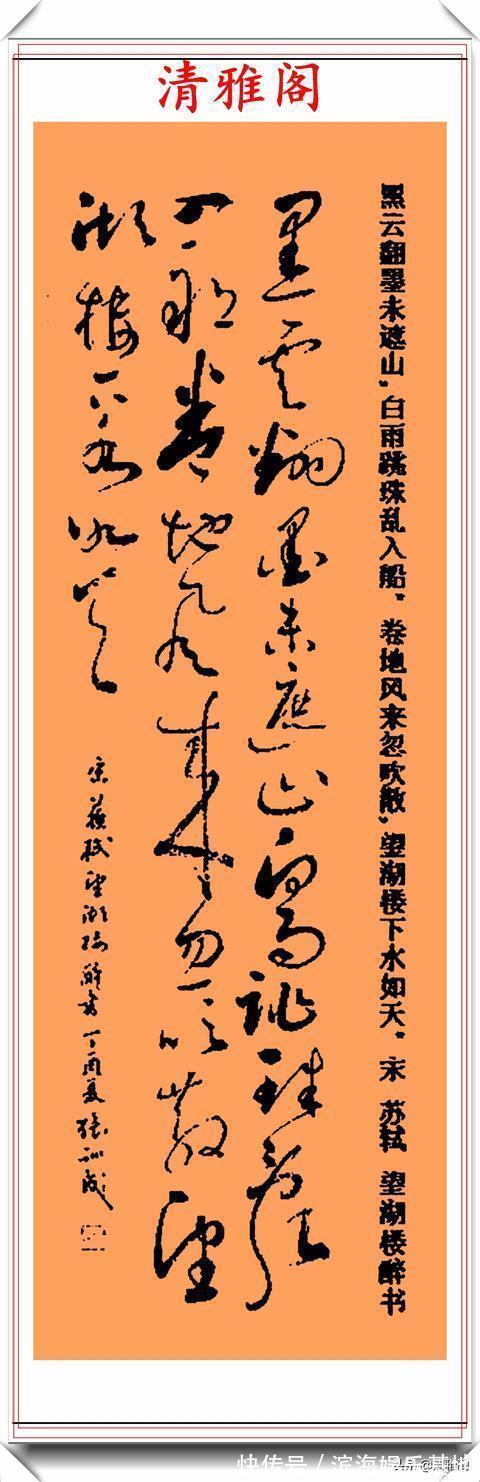 清雅阁
黑云翻墨未遮山，白雨跳珠乱入船。卷地风来忽吹散，望湖楼下水如天。宋 苏轼 望湖楼醉书
黑雲翻墨未遮山白雨跳珠亂
入船卷地風來忽吹散望
湖樓下水如天
宋蘇軾望湖樓醉書 丁酉夏 張訓成
快传号 / 滨海娱乐基地